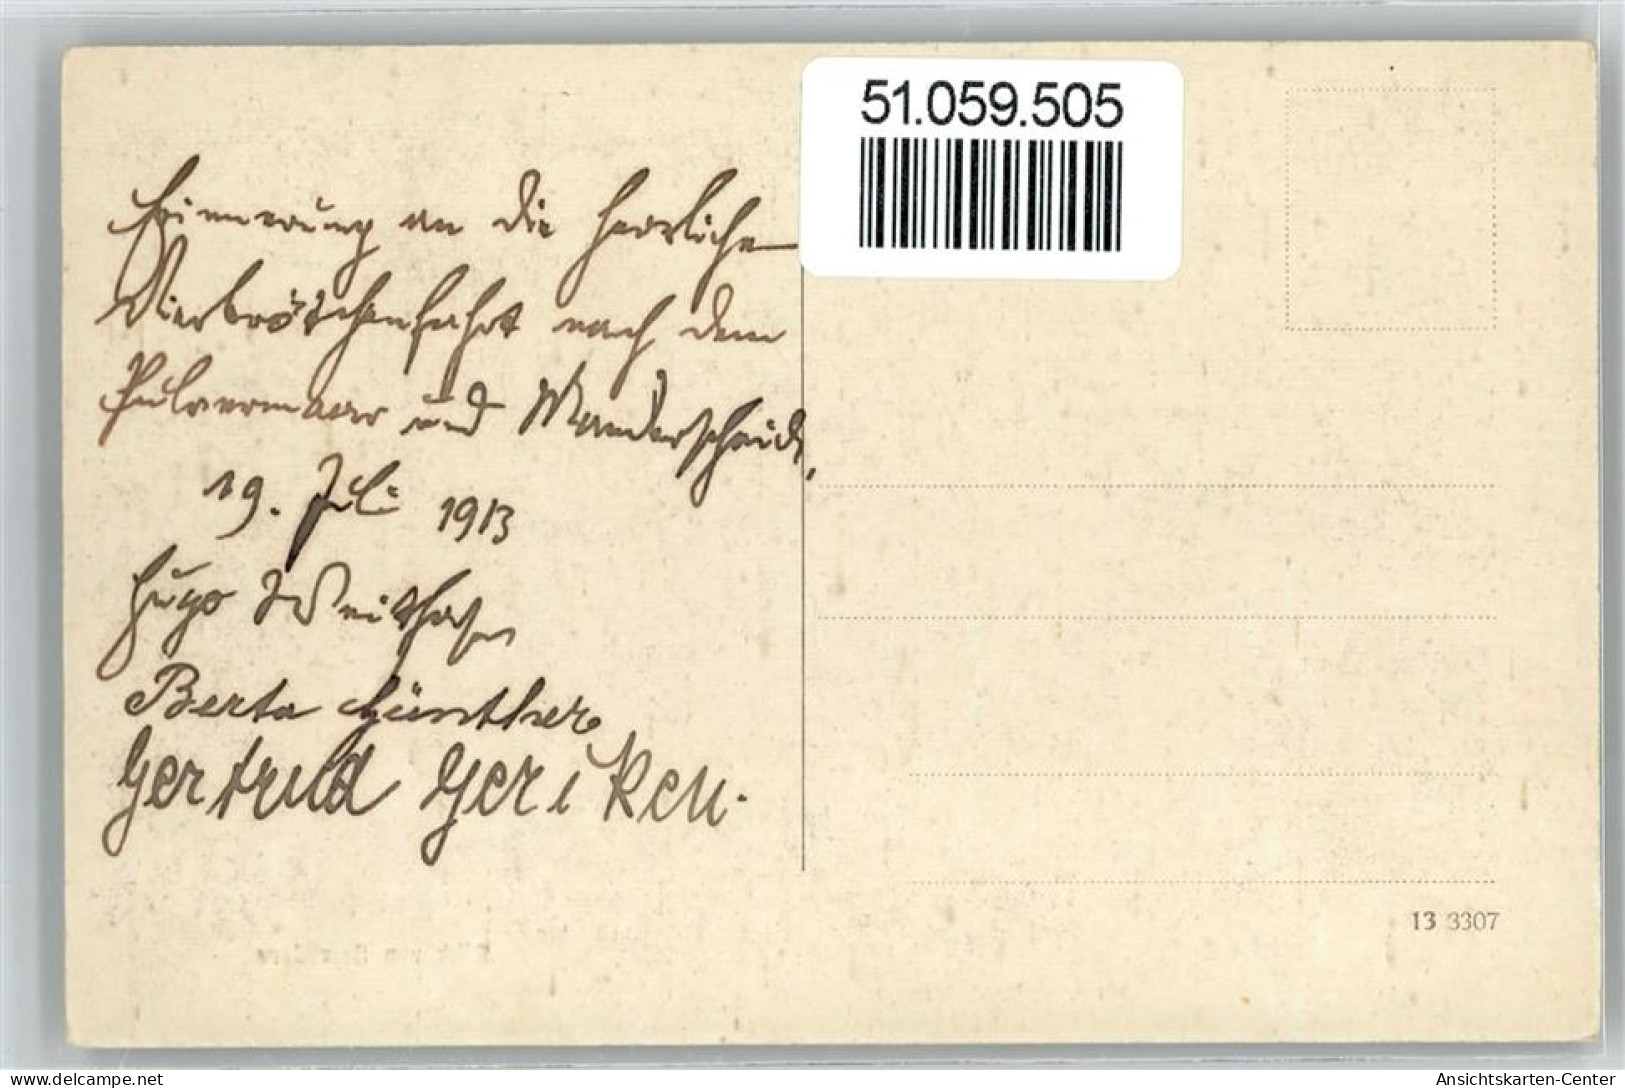 51.059.505
Erinnerung an die herrliche
Vierbrötchenfahrt nach dem
Pulvermaar und Manderscheid.
19. Juli 1913
Hugo Weithase
Berta Günther
Gertrud Geriken.
13 3307
delcampe.net
Ansichtskarten-Center